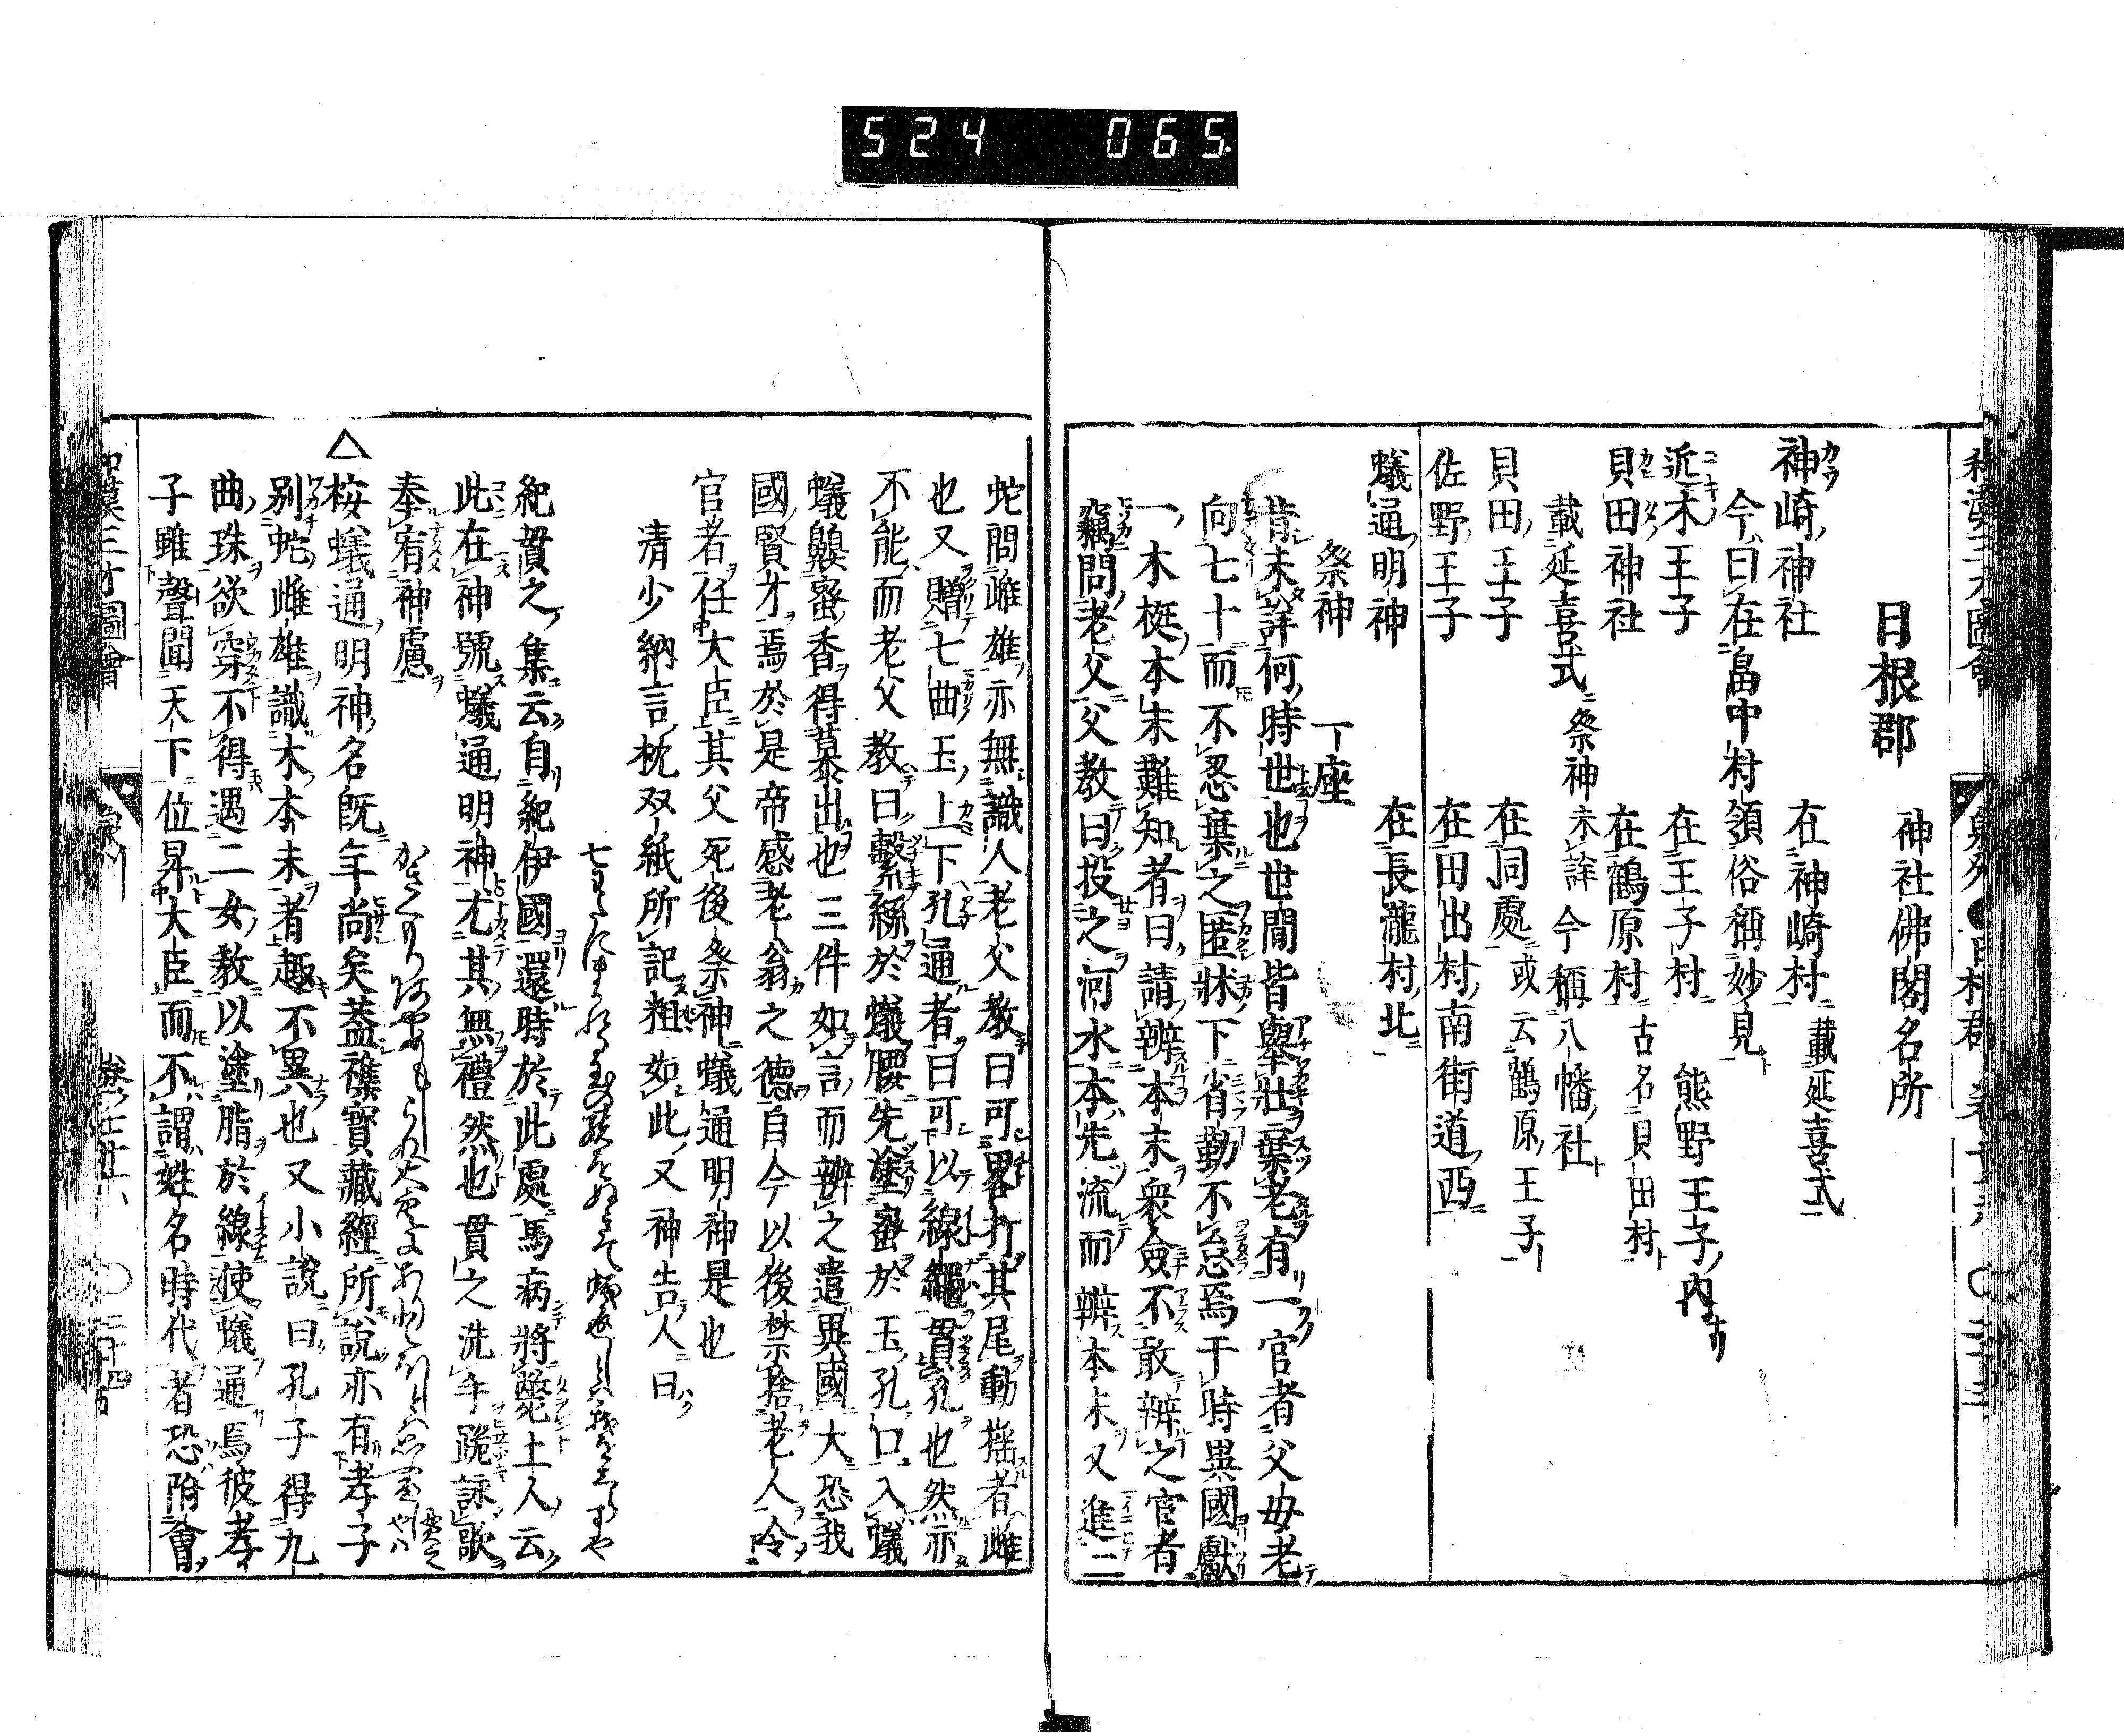 524 065
日根郡 神社佛閣名所
神崎神社 在神崎村 載延喜式
今曰在畠中村領俗稱妙見
近木王子 在王子村 熊野王子內
貝田神社 在鶴原村 古名貝田村
載延喜式 祭神未詳 今稱八幡社
貝田王子 在同處 或云鶴原王子
佐野王子 在田出村南街道西
蟻通明神 在長瀧村北
祭神 一座
昔未詳何時世也世間皆擧壯棄老有一官者父母老
向七十而不忍棄之匿牀下省勤不怠焉于時異國獻
一木梃本末難知者曰請辨本末衆僉不敢辨之官者
竊問老父父教曰投之河水本先流而辨本末又進二
蛇問雌雄亦無識人老父教曰可畧打其尾動搖者雌
也又贈七曲玉上下孔通者曰可以線繩貫孔也然亦
不能而老父教曰繫絲於蟻腰先塗蜜於玉孔口入蟻
蟻齅蜜香得募出也三件如言而辨之遣異國大恐我
國賢才焉於是帝感老翁之德自今以後禁捨老人令
官者任大臣其父死後祭神蟻通明神是也
清少納言枕双紙所記粗如此又神告人曰
紀貫之集云自紀伊國還時於此處馬病將斃土人云
此在神號蟻通明神尤其無禮然也貫之洗手跪詠歌
奉宥神慮
△桉蟻通明神名既年尚矣蓋襍寶藏經所說亦有孝子
別蛇雌雄識木本末者趣不異也又小說曰孔子得九
曲珠欲穿不得遇二女教以塗脂於線使蟻通焉彼孝
子雖聲聞天下位昇大臣而不謂姓名時代者恐附會